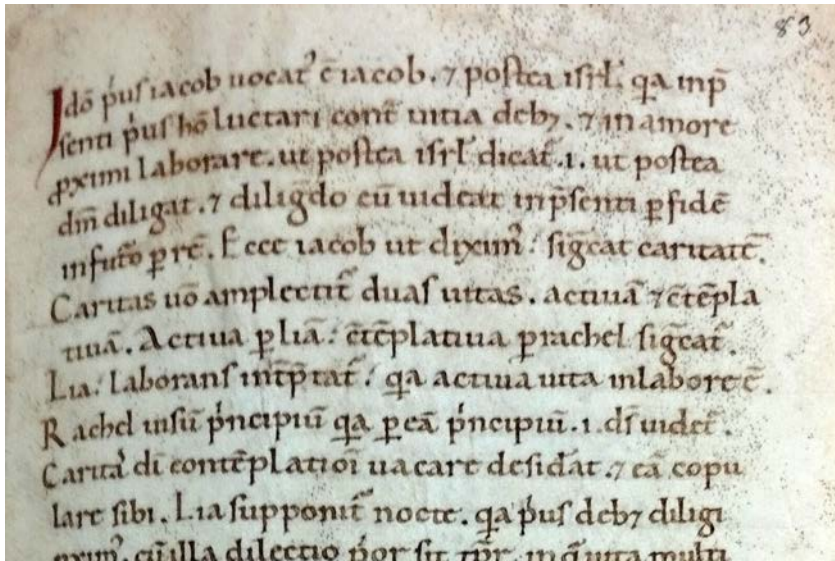 83
Idō p̍us iacob uocat᷒ ē iacob. ⁊ postea isrl̄. q̇a inp̄
senti p̍us hō luctari cont̄ uitia deb;. ⁊ in amore
ꝓximi laborare. ut postea isrl̄ dicat᷒. .i. ut postea
dm̄ diligat. ⁊ diligēdo eū uideat inp̄senti ꝑ fidē
in fut̄o ꝑ rē. Ecce iacob ut dixim᷒. sig̅cat caritatē.
Caritas uō amplectit᷒ duas uitas. actiuā ⁊ c̄tēpla
tiuā. Actiua ꝑ liā. c̄tēplatiua ꝑ rachel sig̅cat᷒.
Lia. laborans int̄p̄tat᷒. q̇a actiua uita in labore ē.
Rachel uisū p̍ncipiū q̇a ꝑ eā p̍ncipiū .i. ds̄ uidet᷒.
Carita᷒ dī contēplatioī uacare desid̄at. ⁊ eā copu
lare sibi. Lia supponit᷒ nocte. q̇a p̍us deb; diligi
cū illa dilectio p̍or sit tp̄r. in q̄ uita multi